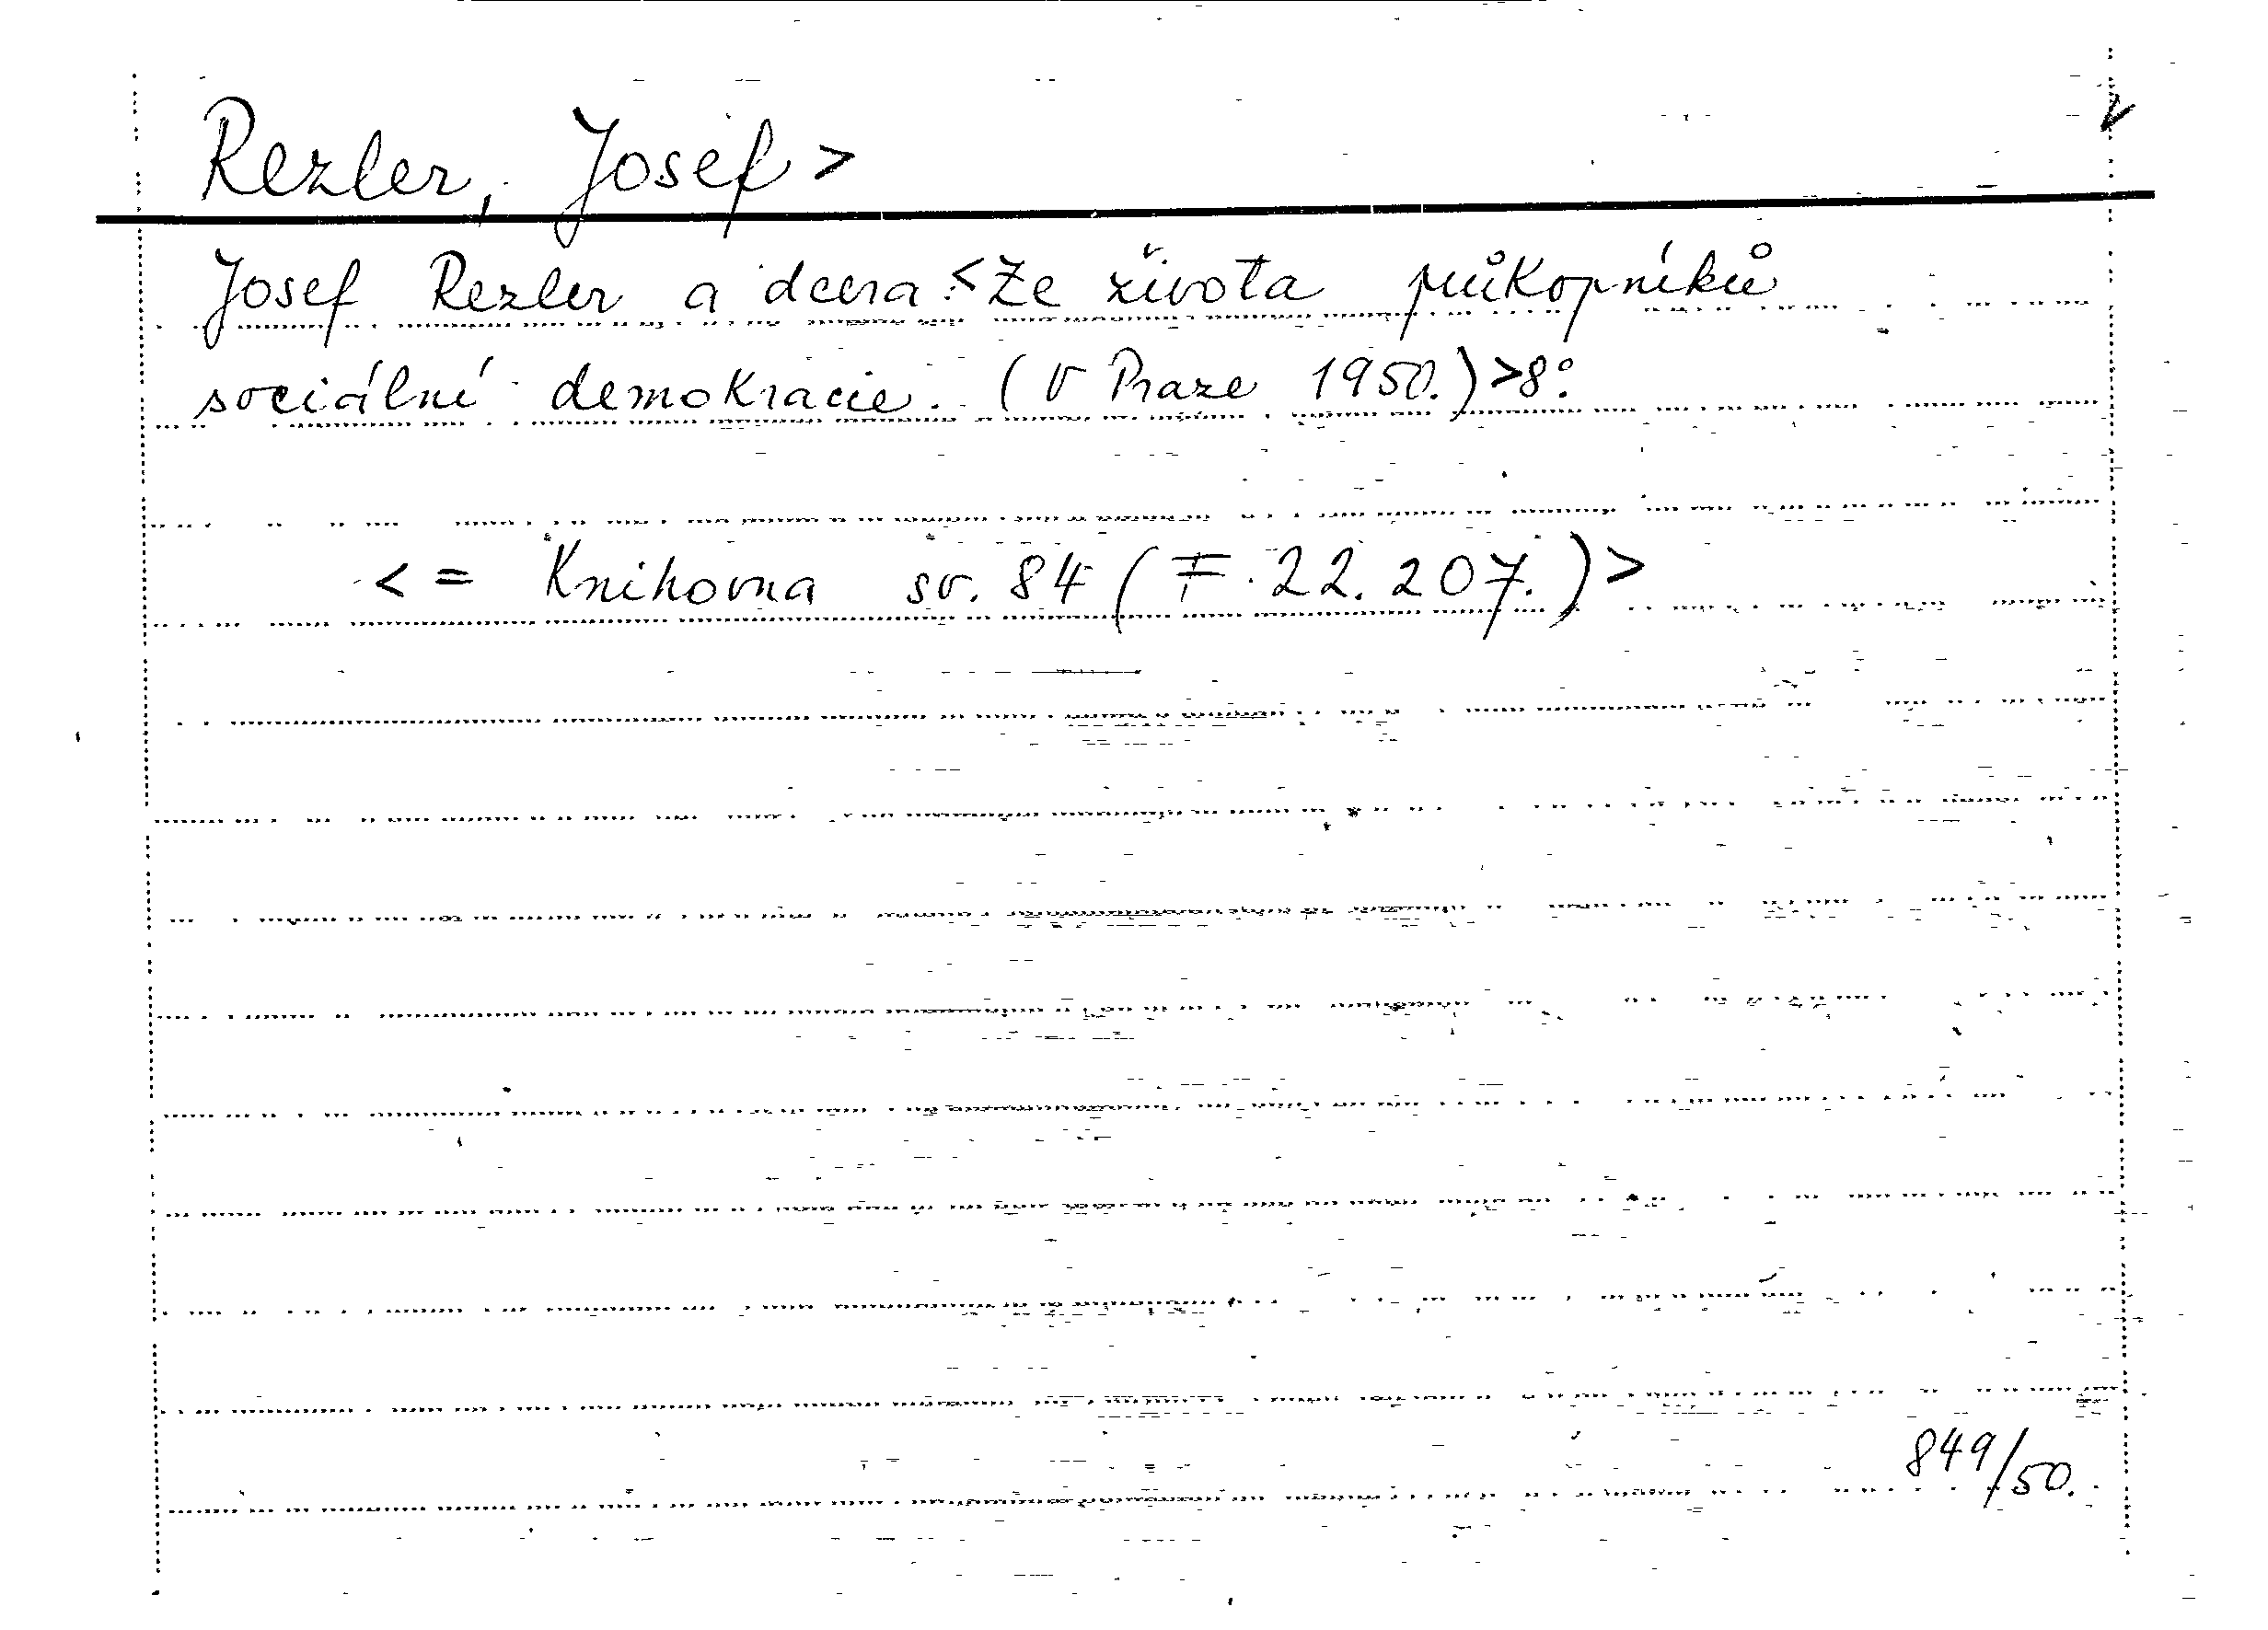 Rezler, Josef >
Josef Rezler a dcera :< Ze života průkopníků
sociální demokracie. (V Praze 1950.) > 8°.
< = Knihovna sv. 84 ( F. 22. 207. ) >
849/50.